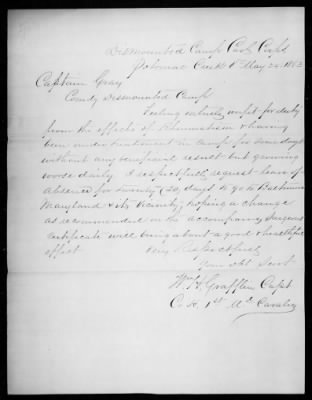 Dismounted Camp Cav Corps
Potomac Creek Va May 24 1863
Captain Gray
Comdg Dismounted Camp
Feeling entirely unfit for duty
from the effects of Rheumatism & having
been under treatment in Camp for some days
without any beneficial result but growing
worse daily I respectfully request leave of
absence for twenty (20) days to go to Baltimore
Maryland & its vicinity, hoping a change
as recommended in the accompany Surgeons
certificate will bring about a good & healthful
effect
Very Respectfully
Your Obt Servt
Wm H. Grafflin Capt
Co 1st Cavalry